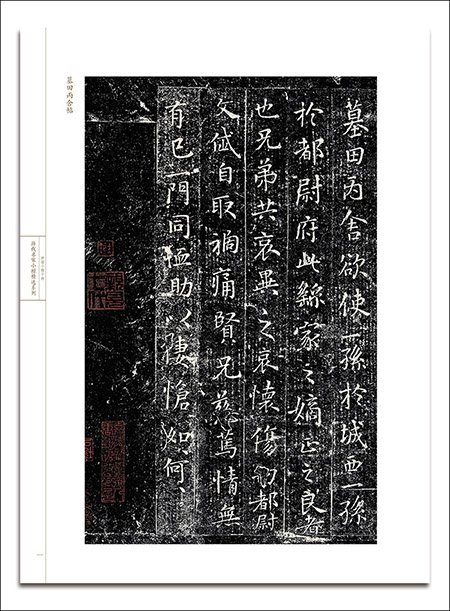 墓田丙舍欲使一孫於城西一孫
於都尉府此繇家之嫡正之良者
也兄弟共哀異之哀懷傷切都尉
文岱自取禍痛賢兄慈篤情無
有已一門同恤助以悽愴如何〻
墓田丙舍帖
历代名家小楷精选系列
一